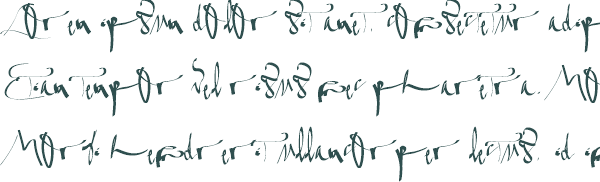 Lorem ipsum dolor sit amet, consectetur adip
Etiam tempor vel risus nec pharetra. Mo
Morbi hendrerit ullamcorper lectus, id